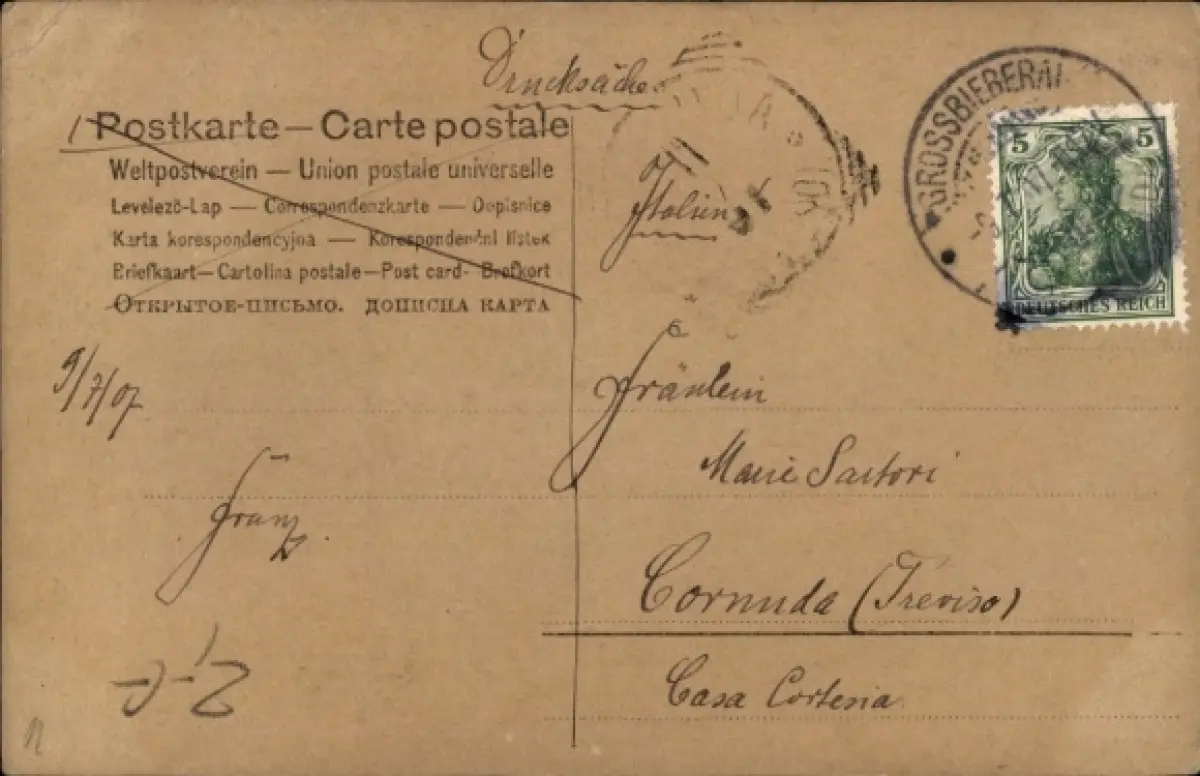 Drucksache
Postkarte — Carte postale
Weltpostverein — Union postale universelle
Levelező-Lap — Correspondenzkarte — Dopisnice
Karta korespondencyjna — Korespondenční lístek
Briefkaart — Cartolina postale — Post card - Brefkort
Открытое-письмо. дописна карта
Italien
GROSSBIEBERAU
5 5
DEUTSCHES REICH
9/7/07
Franz.
Fräulein
Marie Sartori
Cornuda (Treviso)
Casa Cortesia